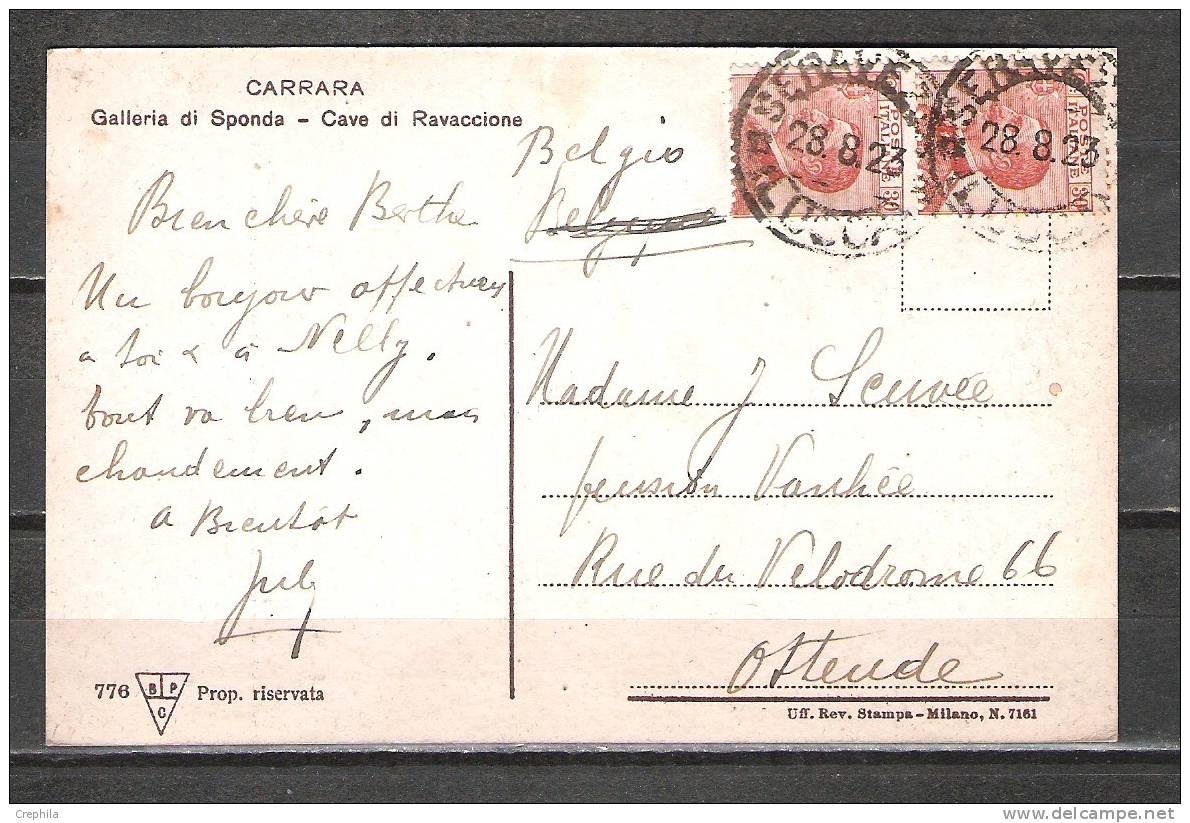 CARRARA
Galleria di Sponda - Cave di Ravaccione
Bien chère Berthe
Un bonjour affectueux
a toi & à Nelly.
tout va bien, mais
chaudement.
A Bientôt
776 B P C Prop. riservata
Belgio
Belgique
POSTE ITALIANE 30
POSTE ITALIANE 30
28.8.23
28.8.23
LUCCA
LUCCA
Madame J Scuvée
pension Vanhée
Rue du Velodrome 66
Ostende
Uff. Rev. Stampa - Milano, N. 7161
Crephila
delcampe.net